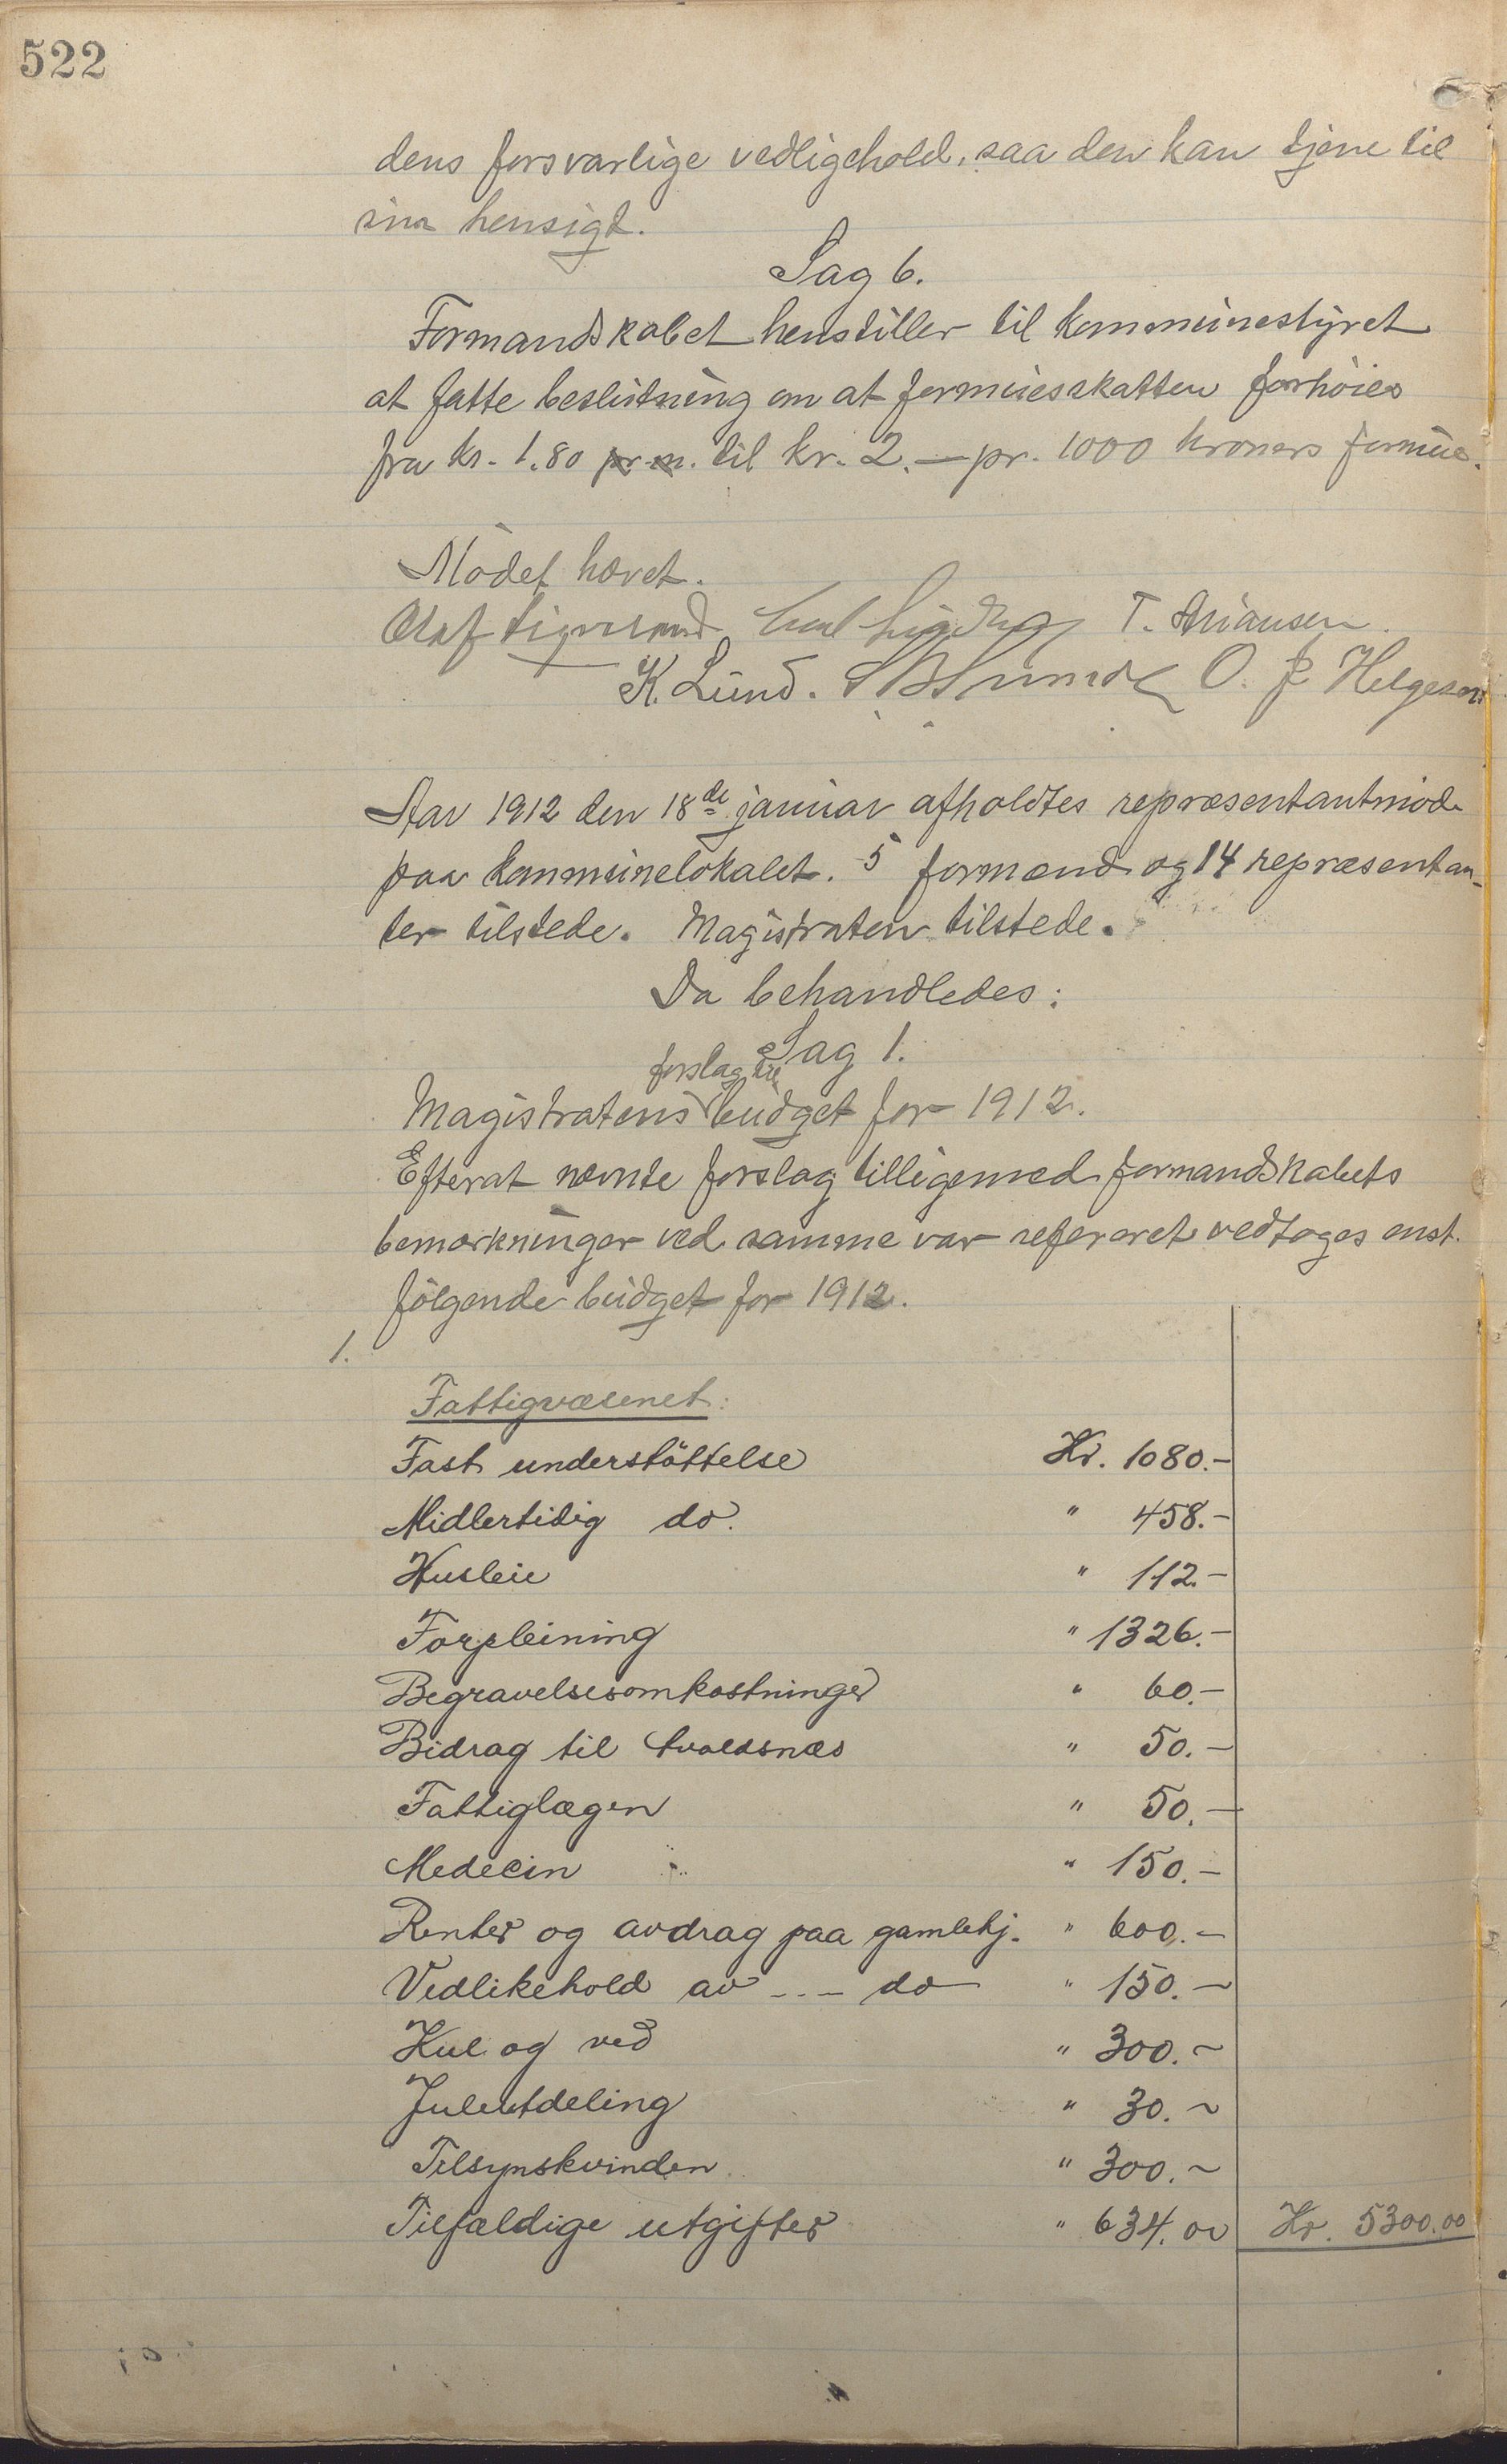 522
dens forsvarlige vedligehold, saa den kan tjene til
sin hensigt.
Sag 6.
Formandskabet henstiller til kommunestyret
at fatte beslutning om at formuesskatten forhöies
fra kr. 1.80 pr. m. til kr. 2.— pr. 1000 kroners formue.
Mödet hævet.
Olaf T. Ariansen.
K. Lund. O. J. Helgesen
Aar 1912 den 18de januar afholdtes repræsentantmöde
paa kommunelokalet. 5 formænd og 14 repræsentan-
ter tilstede. Magistraten tilstede.
Da behandledes:
Sag 1.
forslag til
Magistratens budget for 1912.
Efterat nævnte forslag tilligemed formandskabets
bemærkninger ved samme var refereret vedtoges enst.
fölgende budget for 1912.
1.
Fattigvæsenet:
Fast understöttelse Kr. 1080.-
Midlertidig do. " 458.-
Husleie " 112.-
Forpleining " 1326.-
Begravelsesomkostninger " 60.-
Bidrag til Avaldsnæs " 50.-
Fattiglægen " 50.-
Medecin " 150.-
Renter og avdrag paa gamlehj. " 600.-
Vedlikehold av -.- do " 150.-
Kul og ved " 300.-
Juleutdeling " 30.-
Tilsynskvinden " 300.-
Tilfældige utgifter " 634.00 Kr. 5300.00